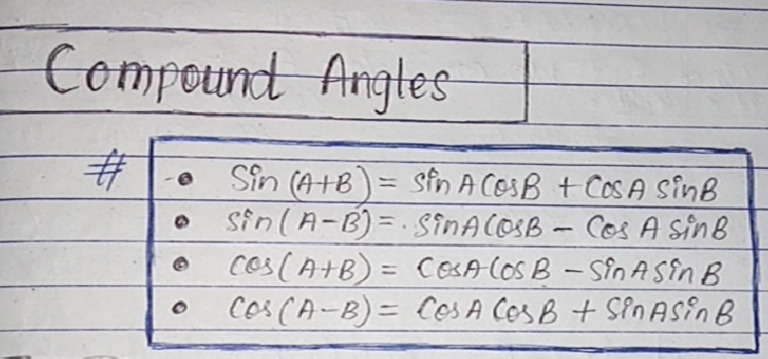 Compound Angles
# • Sin (A+B) = sin A CosB + CosA sinB
• sin(A-B) = . sinA CosB - Cos A sinB
• cos(A+B) = CosA CosB - sinA sin B
• Cos(A-B) = CosA CosB + sinA sin B